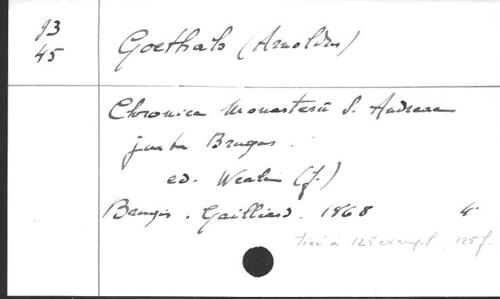 J3
45
Goethals (Arnoldus)
Chronica Monasterii S. Andreae
juxta Brugas.
ed. Weale (J.)
Brugis. Gailliard. 1868 4°
tiré à 125 exempl. 125 f.